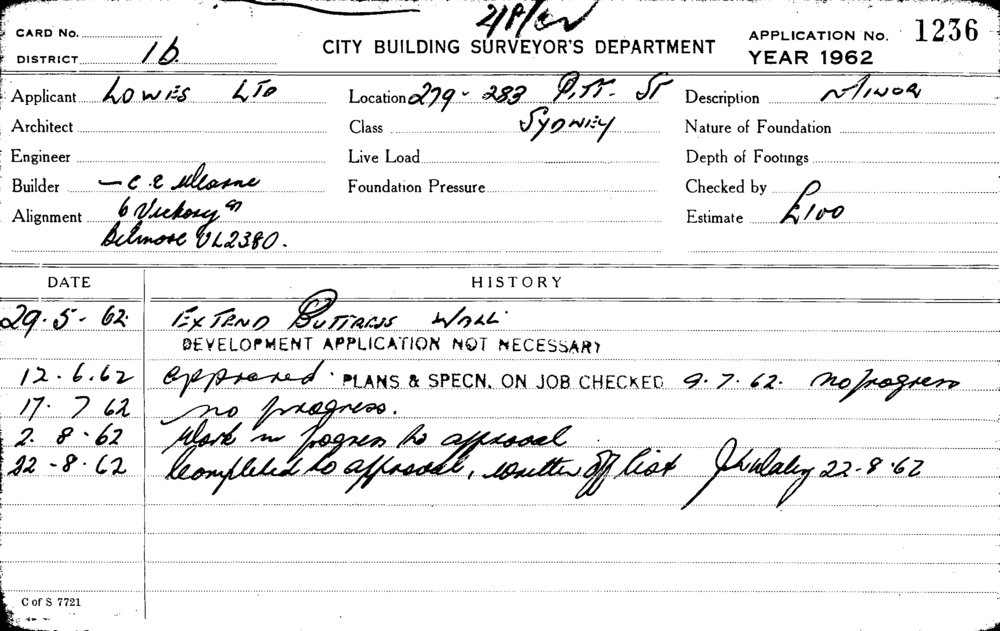 2/8/62
CARD No.
CITY BUILDING SURVEYOR'S DEPARTMENT
APPLICATION No. 1236
DISTRICT 1b.
YEAR 1962
Applicant LOWES LTD
Location 279-283 PITT. ST
Description MINOR
Architect
Class SYDNEY
Nature of Foundation
Engineer
Live Load
Depth of Footings
Builder - C. E.
Foundation Pressure
Checked by
Alignment 6 Vickory
Estimate £100
Belmore UL2380.
DATE
HISTORY
29.5.62. EXTEND BUTTRESS WALL.
DEVELOPMENT APPLICATION NOT NECESSARY
12.6.62 approved. PLANS & SPECN. ON JOB CHECKED 9.7.62. no progress
17.7.62 no progress.
2.8.62 Work in progress to approval
22-8.62 Completed to approval, written off list 22-8.62
C of S 7721